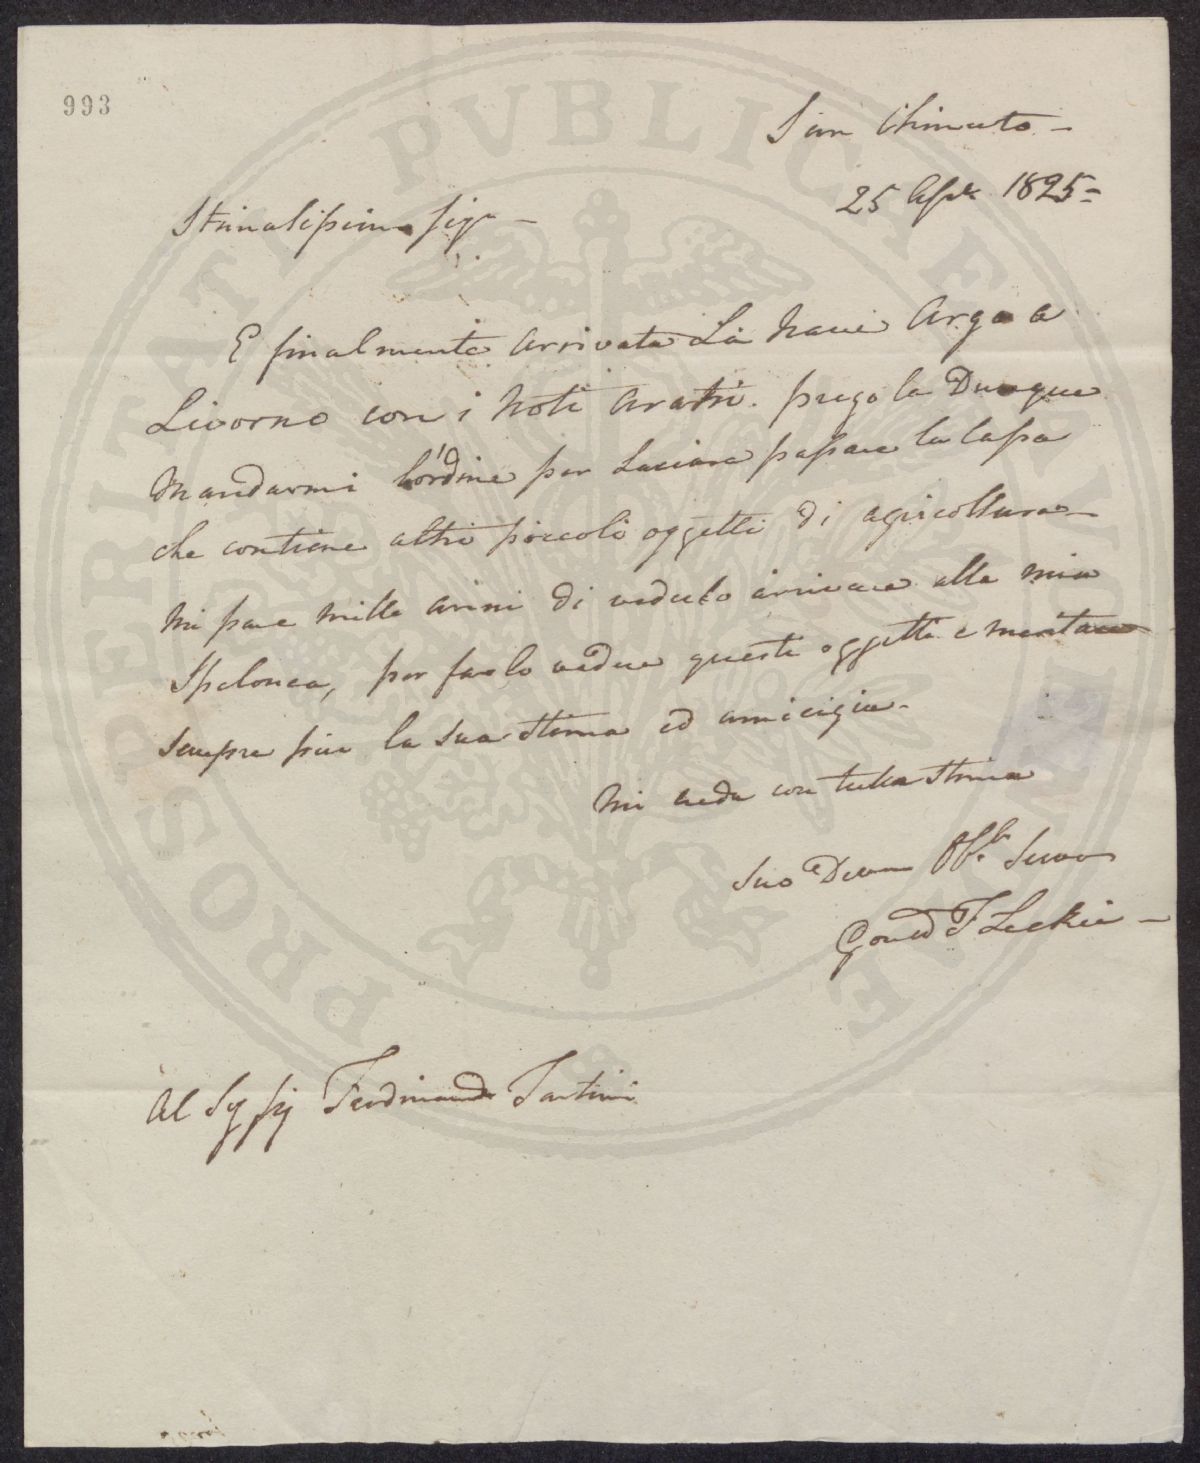 993
San Chimento -
25 Aple 1825 =
Stimatissimo Sigr -
E finalmente arrivata La Nave Argo a
Livorno con i Noti aratri. prego la Dunque
Mandarmi l'ordine per Lasciare passare la Cassa
che contiene altri piccoli oggetti di agricoltura -
Mi pare mille anni di vederlo arrivare alla mia
Spelonca, per farlo vedere questi oggetti e meritare
sempre piu la sua Stima ed amicizia -
Mi creda con tutta Stima
Suo Devmo Obb. Servo
Gould F Leckie -
Al Sig Sig Ferdinando Tartini
PROSPERITATI PVBLICAE